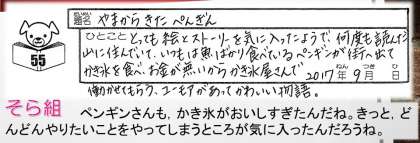 題名 やまからきた ぺんぎん
ひとこと とっても絵とストーリーを気に入ったようで 何度も読んだ
山に住んでいて、いつもは魚ばかり食べているペンギンが街へ出て
かき氷を食べ、お金が無いからかき氷屋さんで
2017年 9月 日
働かせてもらう、ユーモアがあってかわいい物語。
55
そら組 ペンギンさんも，かき氷がおいしすぎたんだね。きっと，ど
んどんやりたいことをやってしまうところが気に入ったんだろうね。